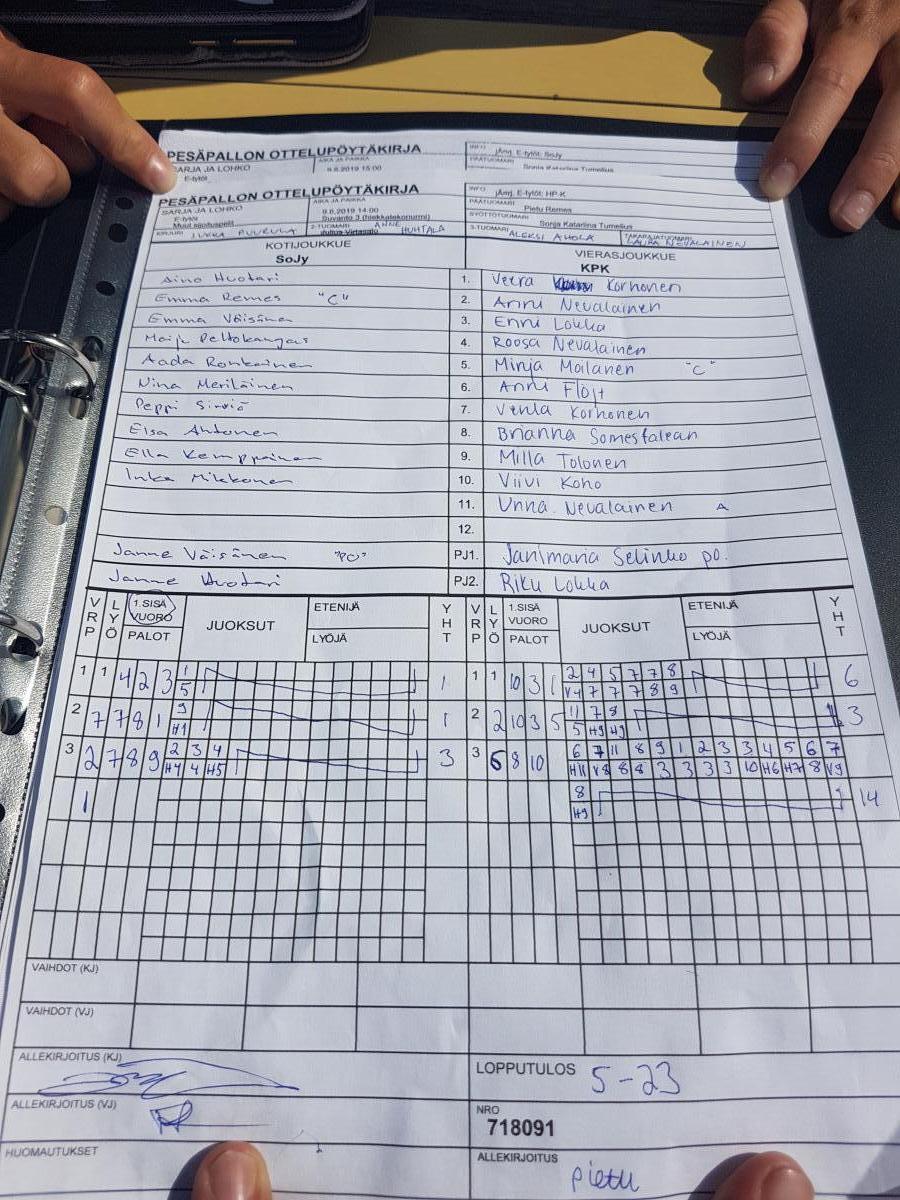 PESÄPALLON OTTELUPÖYTÄKIRJA
SARJA JA LOHKO AIKA JA PAIKKA INFO järj. E-tytöt: SoJy
E-tytöt 9.6.2019 15:00 PÄÄTUOMARI Sonja Katariina Tumelius
PESÄPALLON OTTELUPÖYTÄKIRJA
SARJA JA LOHKO AIKA JA PAIKKA INFO järj. E-tytöt: HP-K
E-tytöt 9.6.2019 14:00 PÄÄTUOMARI Pietu Remes
Muut sijoituspelit Suvanto 3 (hiekkatekonurmi) SYÖTTÖTUOMARI Sonja Katariina Tumelius
KIRJURI JUKKA PUURULA 2-TUOMARI ANNE HUHTALA 3-TUOMARI ALEKSI AHOLA TAKARAJATUOMARI LAURA NEVALAINEN
KOTIJOUKKUE VIERASJOUKKUE
SoJy KPK
Aino Huotari 1. Veera Korhonen
Emma Remes "C" 2. Annu Nevalainen
Emma Väisänen 3. Enni Lokka
Maija Peltokangas 4. Roosa Nevalainen
Aada Ronkainen 5. Minja Moilanen "C"
Nina Meriläinen 6. Annu Flöjt
Peppi Sirviö 7. Venla Korhonen
Elsa Ahtonen 8. Brianna Somesfalean
Ella Kemppainen 9. Milla Tolonen
Inka Mikkonen 10. Viivi Koho
11. Unna Nevalainen A
12.
Janne Väisänen "PO" PJ1. Janimaria Selinko po.
Janne Huotari PJ2. Riku Lokka
VRP LYÖ 1.SISÄ VUORO PALOT JUOKSUT ETENIJÄ LYÖJÄ YHT VRP LYÖ 1.SISÄ VUORO PALOT JUOKSUT ETENIJÄ LYÖJÄ YHT
1 1 4 2 3 1 1 1 1 10 3 1 2 4 5 7 7 8 6
5 V4 7 7 7 8 9
2 7 7 8 1 9 1 2 2 10 3 5 11 7 8 3
H1 5 H9 H9
3 2 7 8 9 2 3 4 3 3 6 8 10 6 7 11 8 9 1 2 3 3 4 5 6 7
H4 4 H5 H11 V8 8 8 3 3 3 3 10 H6 H7 8 V9
1 8 14
H9
VAIHDOT (KJ)
VAIHDOT (VJ)
ALLEKIRJOITUS (KJ) LOPPUTULOS 5-23
ALLEKIRJOITUS (VJ) NRO 718091
HUOMAUTUKSET ALLEKIRJOITUS Pietu